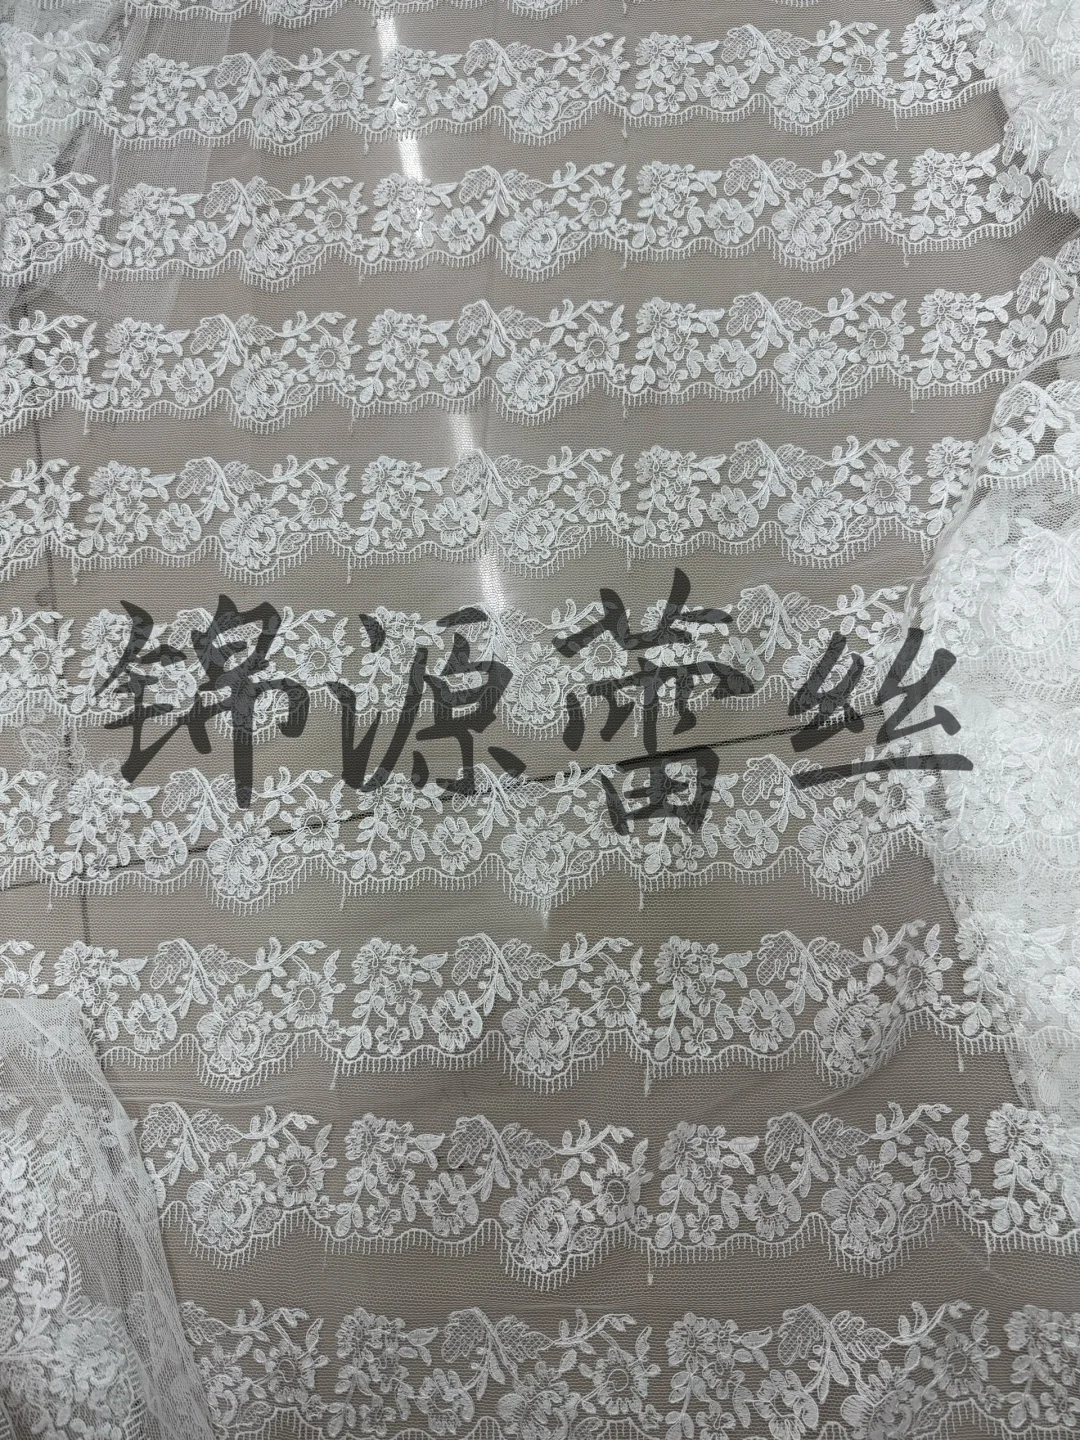 锦源蕾丝